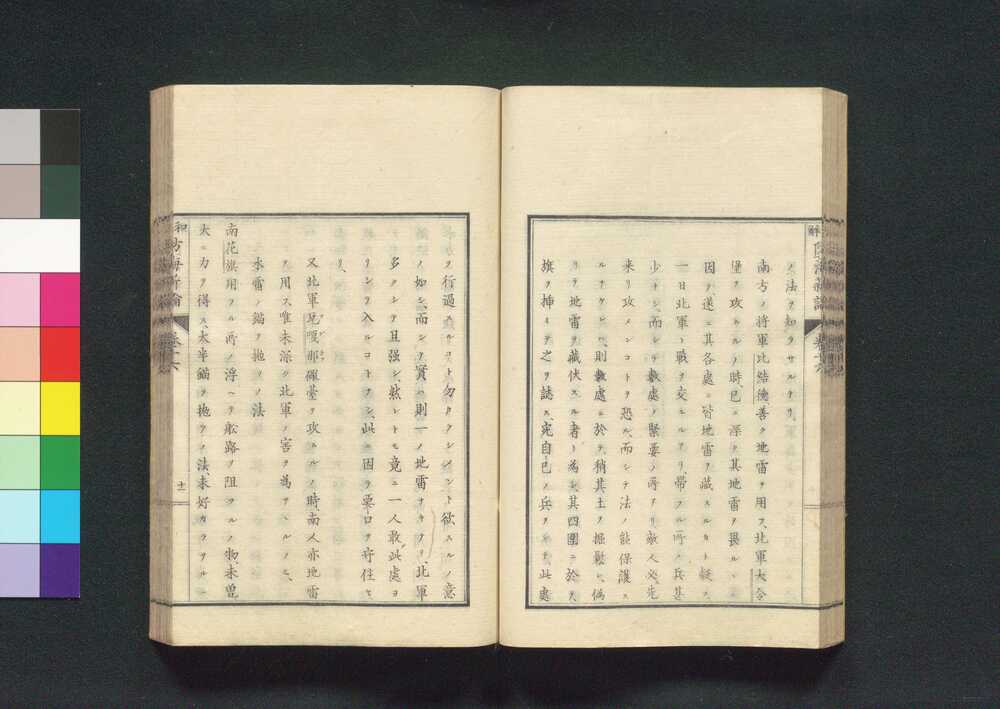 ノ法ヲ知ラサルナリ、
南方ノ將軍比結德善ク地雷ヲ用フ、北軍大令
堡ヲ攻ルノ時、已ニ深ク其地雷ヲ畏ル、
因ヲ遂ニ其各處ニ皆地雷ヲ藏スルカト疑フ、
一日北軍ト戰ヲ交ユルアリ、帶フル所ノ兵甚
少ナシ、而シテ數處ノ緊要ノ所アリ敵人必先
來リ攻メンコトヲ恐ル、而シテ法ノ能保護ス
ルナケレハ、則數處ニ於テ稍其土ヲ掘鬆シ、僞
リテ地雷ヲ藏伏スル者ト爲シ、其四圍ニ於テ
旗ヲ挿ミテ之ヲ誌ス、宛自己ノ兵ヲ此處
ヲ行過スルコト勿ラクシメント欲スルノ意
ノ如シ、而シテ實ハ則一ノ地雷ナキナリ、北軍
多クシテ且强シ、然レトモ竟ニ一人敢此處ヨ
リシテ入ルコトナシ、此ニ因テ要口ヲ守住セ
リ、
又北軍瓦嗄那礮臺ヲ攻ルノ時、南人亦地雷
ヲ用ス唯未深ク北軍ノ害ヲ爲サヽルノミ、
水雷ノ錨ヲ抛ツノ法
南花旗用フル所ノ浮ヘテ船路ヲ阻ツルノ物、未曽
大ニ力ヲ得ス、大半錨ヲ抛ツノ法、未好カラサル
卷十六
十二